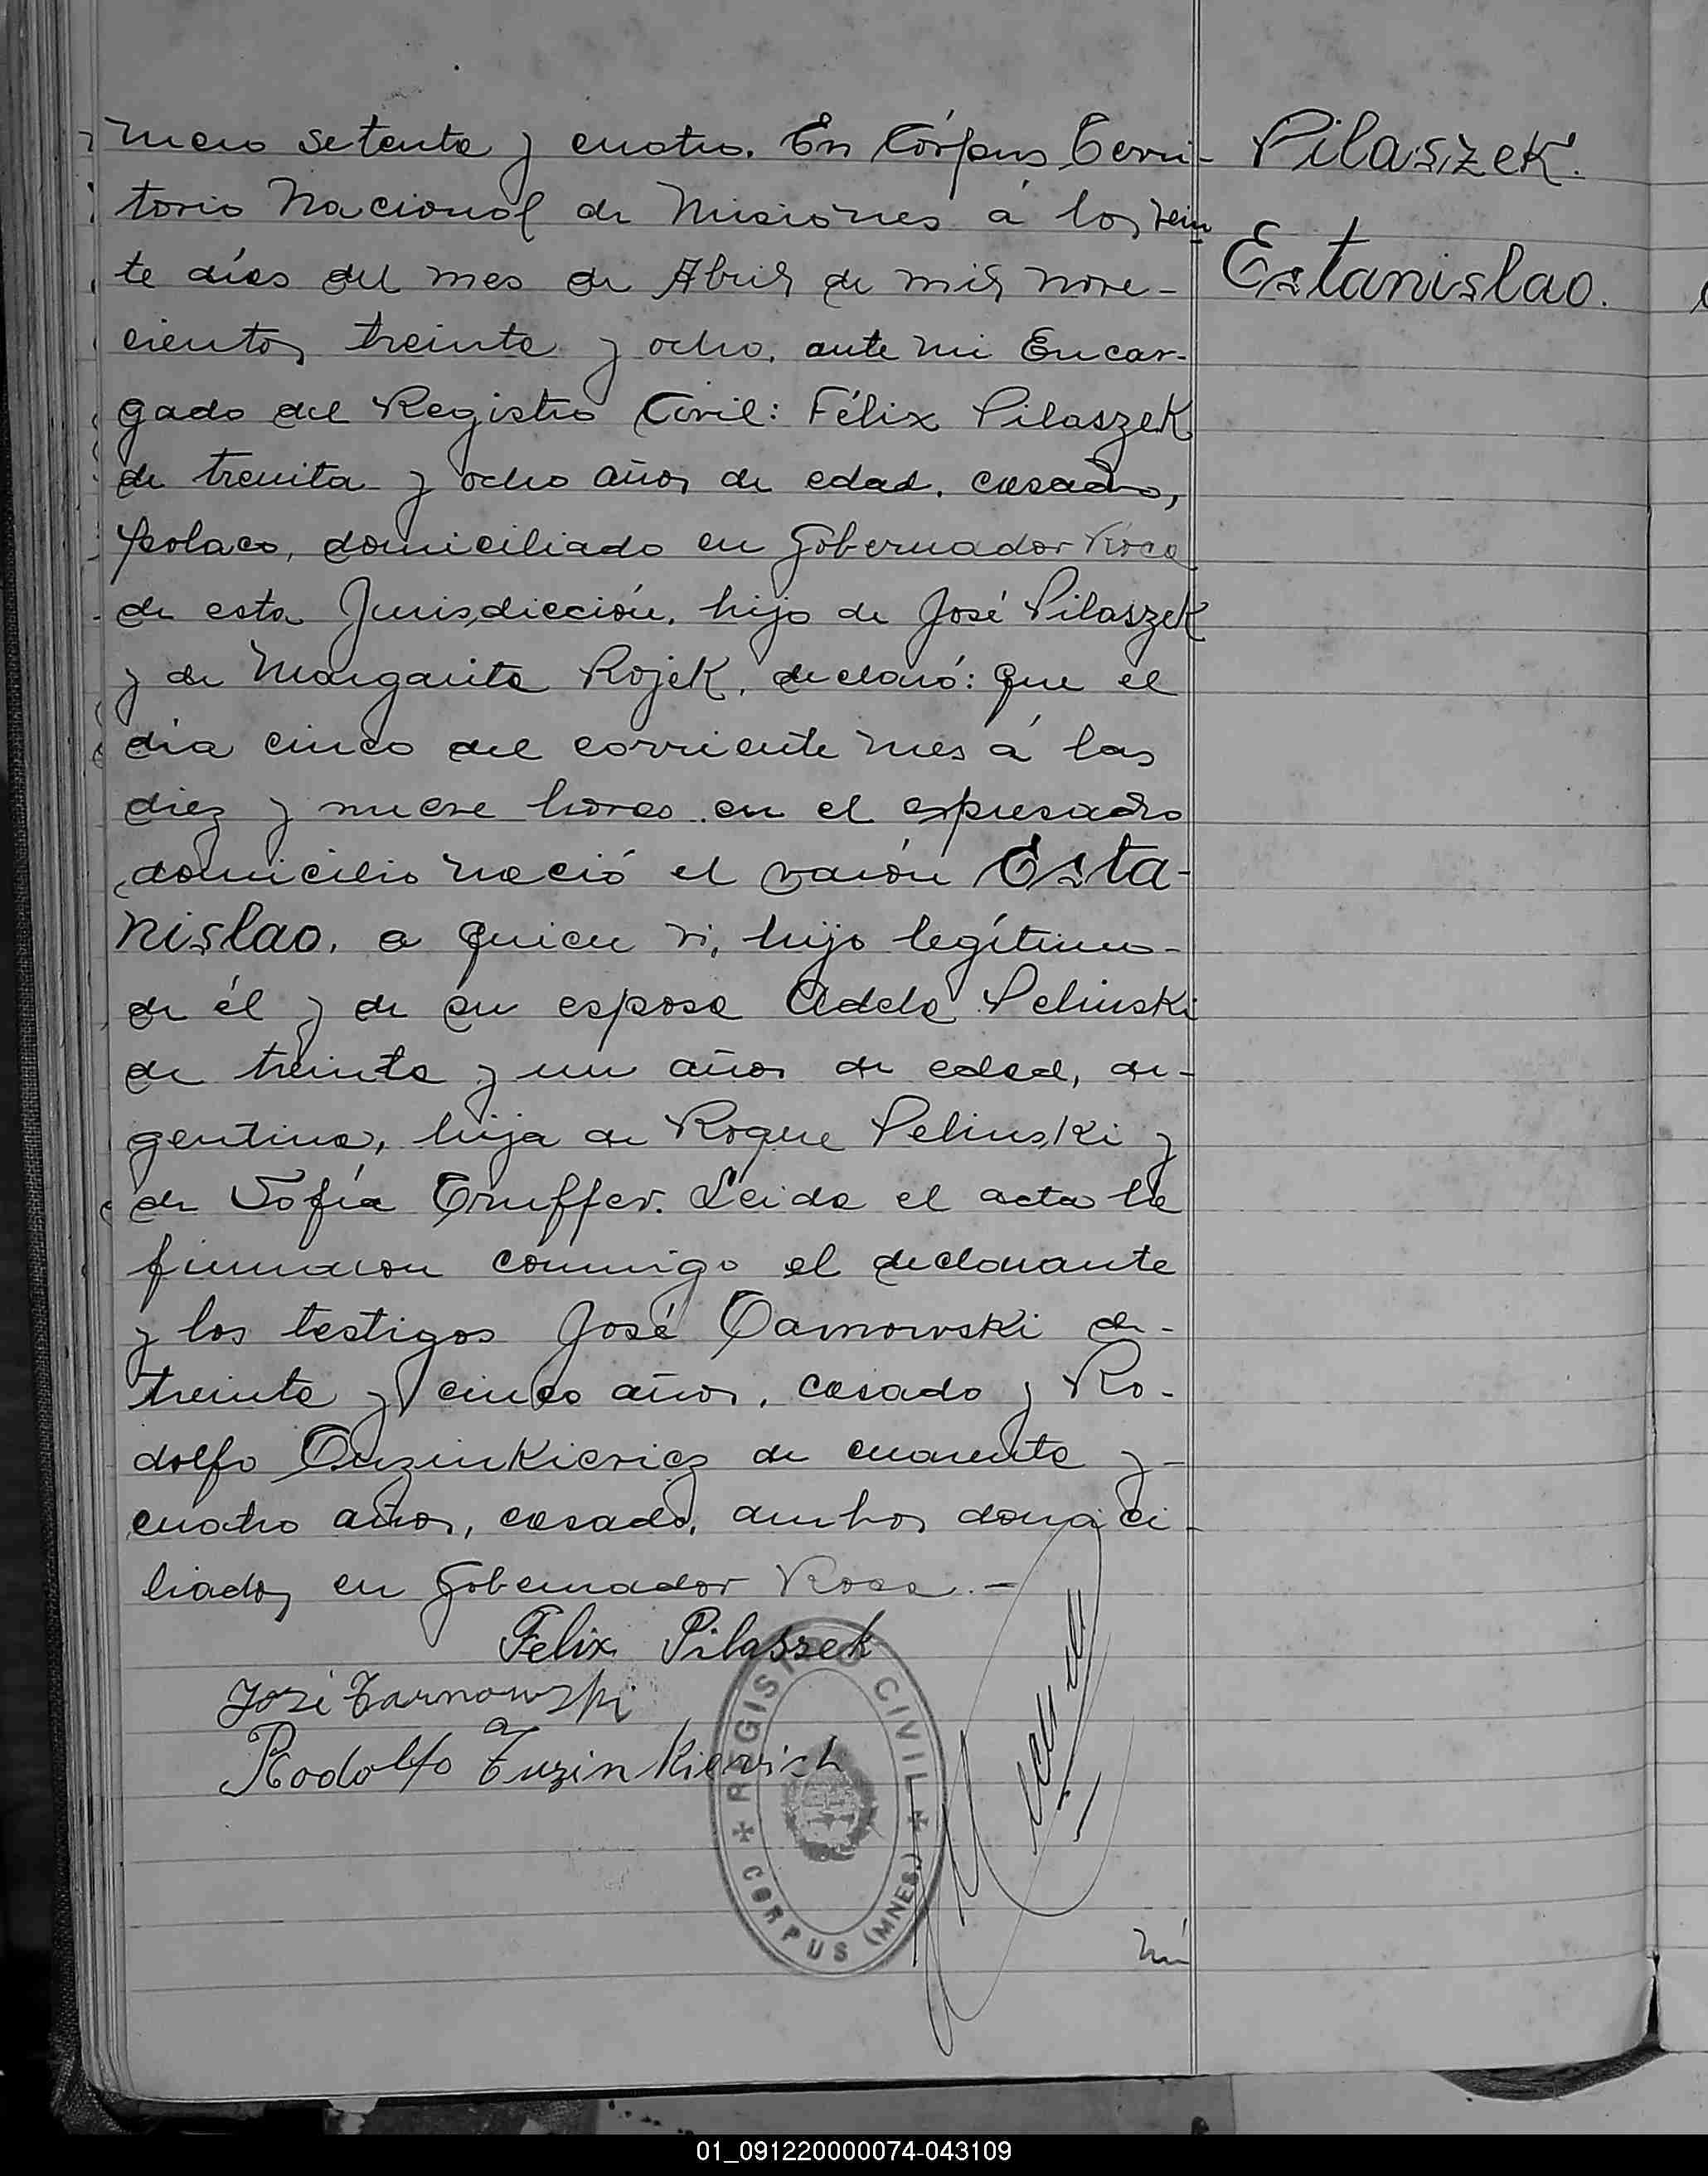 mero setenta y cuatro. En Córpus Terri-
torio Nacional de Misiones á los vein
te días del mes de Abril de mil nove-
cientos treinta y ocho, ante mi Encar-
gado del Registro Civil: Félix Pilaszek
de treinta y ocho años de edad, casado,
polaco, domiciliado en Gobernador Roca
de esta Jurisdicción, hijo de José Pilaszek
y de Margarita Rojek, declaró: que el
día cinco del corriente mes á las
diez y nueve horas en el expresado
domicilio nació el varón Esta-
nislao, a quien vi, hijo legítimo
de él y de su esposa Adela Pelinski
de treinta y un años de edad, ar-
gentina, hija de Roque Pelinski y
de Sofía Truffer. Leida el acta la
firmaron conmigo el declarante
y los testigos José Tarnowski de
treinta y cinco años, casado y Ro-
dolfo Tuzinkievicz de cuarenta y
cuatro años, casado, ambos domici-
liados en Gobernador Roca.-
Felix Pilaszek
José Tarnowski
Rodolfo Tuzinkievich
REGISTRO CIVIL
CORPUS (MNES.)
nú
Pilaszek.
Estanislao.
01_091220000074-043109